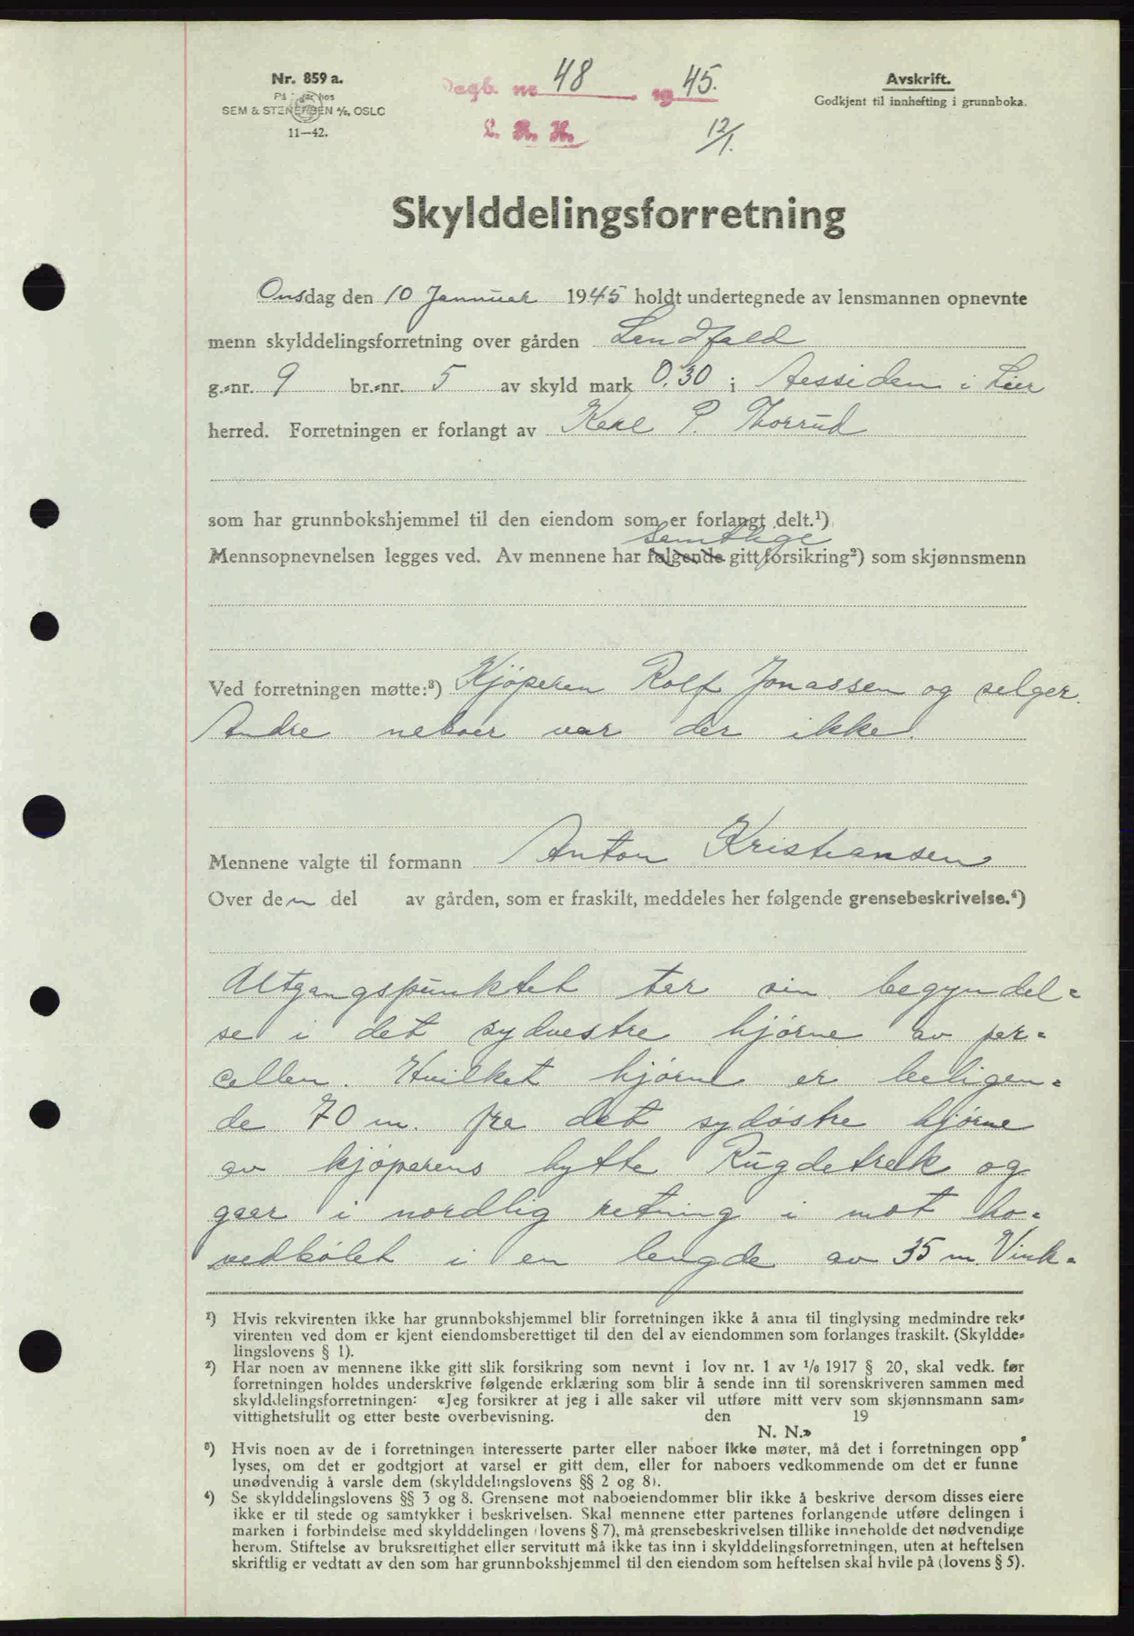 Nr. 859 a.
På lager hos
SEM & STENERSEN A/S, OSLO
11—42.
Dagb. nr. 48 1945.
L. R. H. 12/1.
Avskrift.
Godkjent til innhefting i grunnboka.
Skylddelingsforretning
Onsdag den 10 Januar 1945 holdt undertegnede av lensmannen opnevnte
menn skylddelingsforretning over gården Lindfald
g.-nr. 9 br.-nr. 5 av skyld mark 0.30 i Aessiden i Lier
herred. Forretningen er forlangt av Karl P. Thorrud
som har grunnbokshjemmel til den eiendom som er forlangt delt.¹)
samtlige
Mennsopnevnelsen legges ved. Av mennene har følgende gitt forsikring²) som skjønnsmenn
Ved forretningen møtte:³) Kjøperen Rolf Jonassen og selger.
Andre naboer var der ikke.
Mennene valgte til formann Anton Kristiansen
Over den del av gården, som er fraskilt, meddeles her følgende grensebeskrivelse.⁴)
Utgangspunktet tar sin begyndel=
se i det sydvestre hjørne av par=
cellen. Hvilket hjørne er beligen=
de 70 m. fra det sydøstre hjørne
av kjøperens hytte Rugdetrek og
gaar i nordlig retning i mot ho=
vedbølet i en lengde av 35 m. Vink=
¹) Hvis rekvirenten ikke har grunnbokshjemmel blir forretningen ikke å anta til tinglysing medmindre rek-
virenten ved dom er kjent eiendomsberettiget til den del av eiendommen som forlanges fraskilt. (Skyldde-
lingslovens § 1).
²) Har noen av mennene ikke gitt slik forsikring som nevnt i lov nr. 1 av 1/6 1917 § 20, skal vedk. før
forretningen holdes underskrive følgende erklæring som blir å sende inn til sorenskriveren sammen med
skylddelingsforretningen: «Jeg forsikrer at jeg i alle saker vil utføre mitt verv som skjønnsmann sam-
vittighetsfullt og etter beste overbevisning. den 19
N. N.»
³) Hvis noen av de i forretningen interesserte parter eller naboer ikke møter, må det i forretningen opp
lyses, om det er godtgjort at varsel er gitt dem, eller for naboers vedkommende om det er funne
unødvendig å varsle dem (skylddelingslovens §§ 2 og 8).
⁴) Se skylddelingslovens §§ 3 og 8. Grensene mot naboeiendommer blir ikke å beskrive dersom disses eiere
ikke er til stede og samtykker i beskrivelsen. Skal mennene etter partenes forlangende utføre delingen i
marken i forbindelse med skylddelingen (lovens § 7), må grensebeskrivelsen tillike inneholde det nødvendige
herom. Stiftelse av bruksrettighet eller servitutt må ikke tas inn i skylddelingsforretningen, uten at heftelsen
skriftlig er vedtatt av den som har grunnbokshjemmel til den eiendom som heftelsen skal hvile på (lovens § 5).